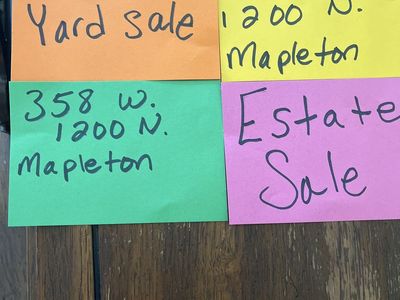 Yard Sale
1200 N.
Mapleton
358 W.
1200 N.
Mapleton
Estate
Sale